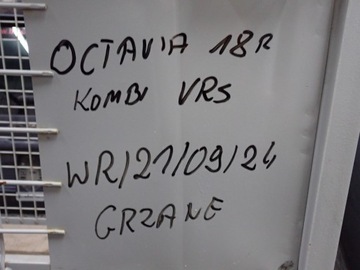 OCTAVIA 18R
KOMBI VRS
WR/21/09/24
GRZANE